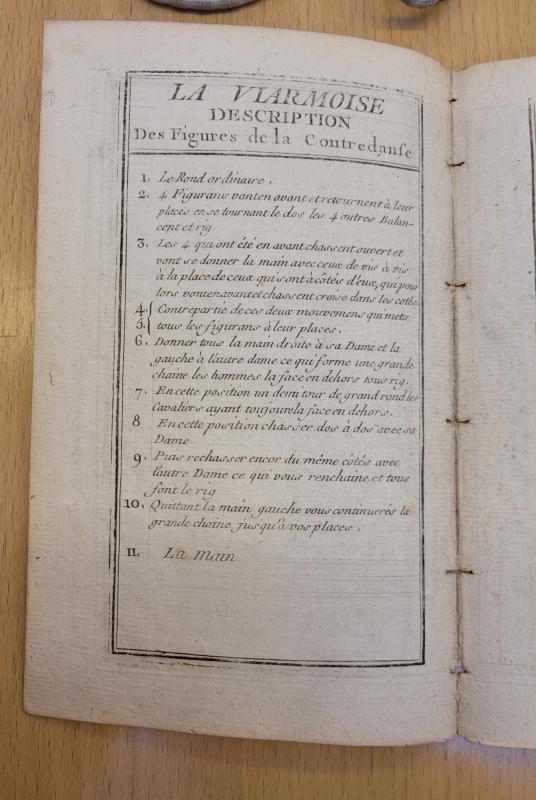 LA VIARMOISE
DESCRIPTION
Des Figures de la Contredanse
1. Le Rond ordinaire.
2. 4 Figurans vont en avant et retournent à leur
places en se tournant le dos les 4 outres Balan-
cent et rig.
3. Les 4 qui ont été en avant chassent ouvert et
vont se donner la main avec ceux de vis à vis
à la place de ceux qui sont à côtés d'eux, qui pour
lors vont en avant et chassent croisé dans les cotés.
4. Contrepartie de ces deux mouvemens qui mets
5. tous les figurans à leur places.
6. Donner tous la main droite à sa Dame et la
gauche à l'autre dame ce qui forme une grande
chaine les hommes la face en dehors tous rig.
7. En cette position un demi tour de grand rond les
Cavaliers ayant toujours la face en dehors.
8 En cette position chasser dos à dos avec sa
Dame
9. Puis rechasser encor du même côtés avec
l'autre Dame ce qui vous renchaine et tous
font le rig
10. Quittant la main gauche vous continuerés la
grande chaine jusqu'à vos places.
11. La main